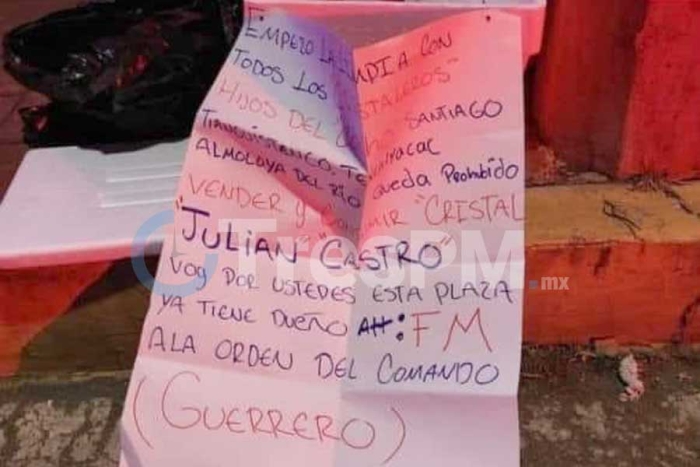 EMPEZO LA LIMPIA CON
TODOS LOS "CRISTALEROS"
HIJOS DEL SANTIAGO
TIANGUISTENCO, TE
ALMOLOYA DEL RIO QUEDA PROHIBIDO
VENDER Y CONSUMIR "CRISTAL
"JULIAN" "CASTRO"
VOY POR USTEDES ESTA PLAZA
YA TIENE DUEÑO ATT: FM
A LA ORDEN DEL COMANDO
(GUERRERO)
TresPM.mx